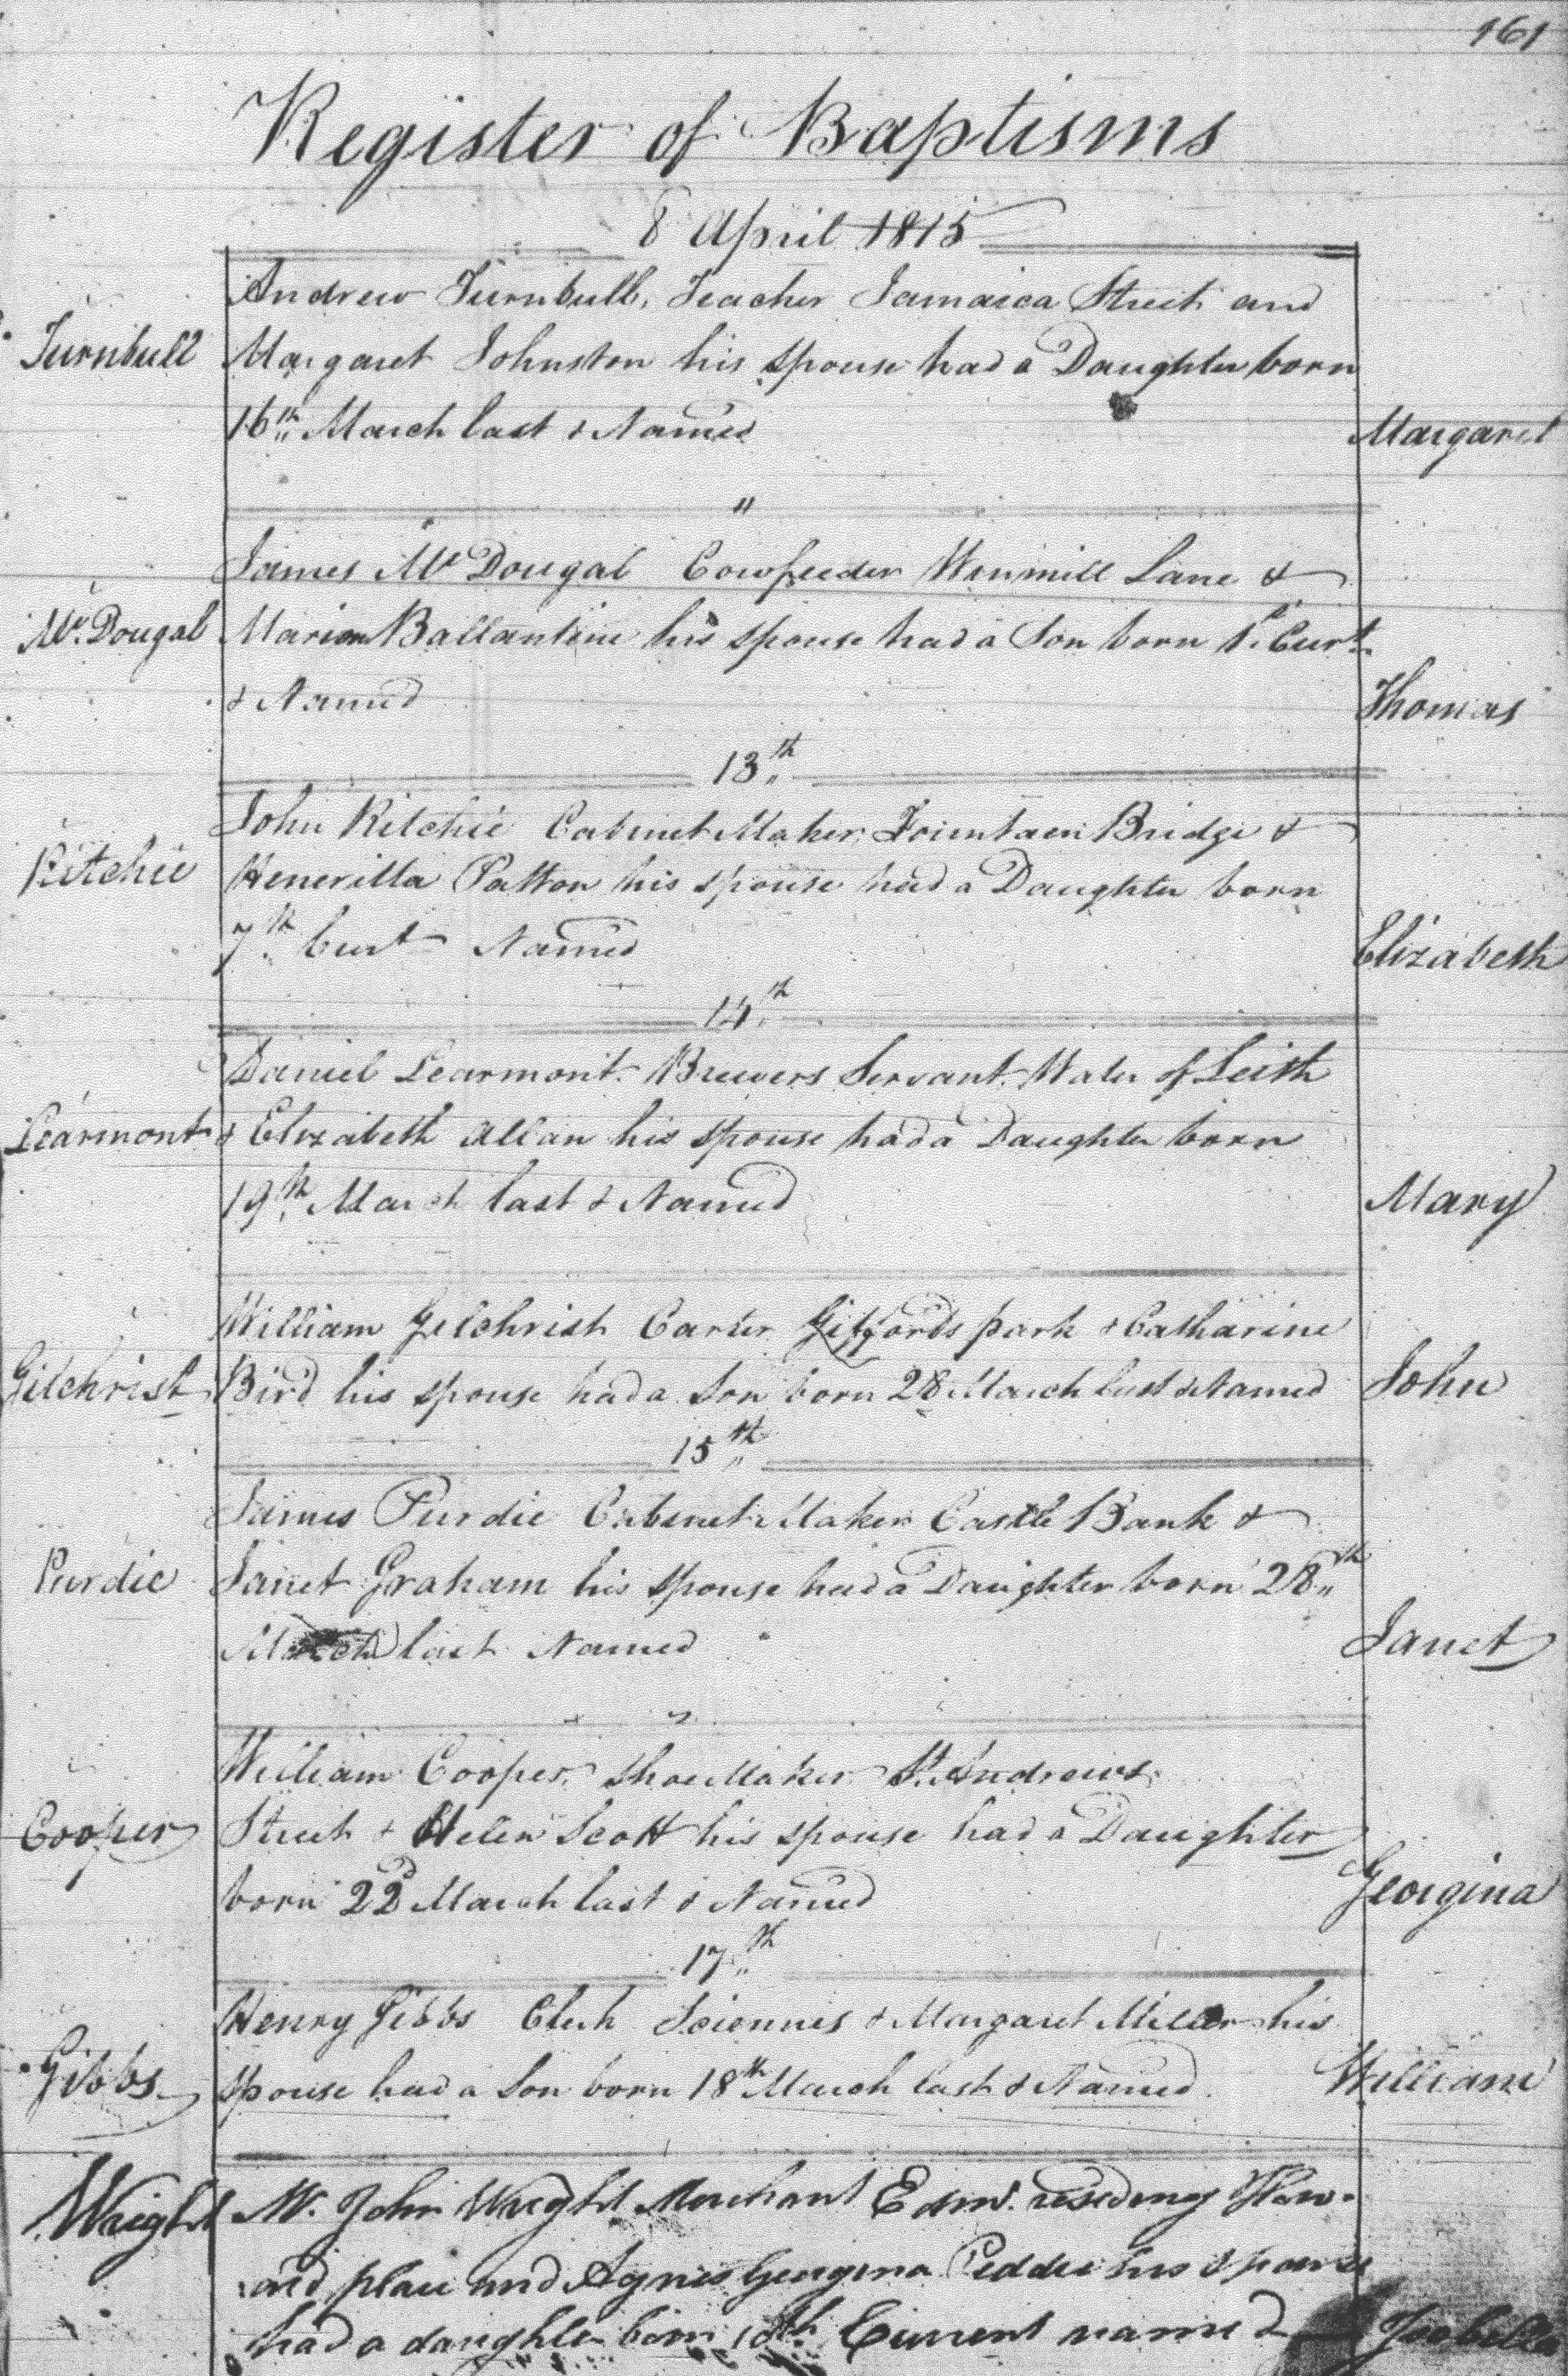 161
Register of Baptisms
8 April 1815
Andrew Turnbull, Teacher Jamaica Street and
Turnbull Margaret Johnston his spouse had a Daughter born
16th March last & Named Margaret
"
James McDougal Cowfeeder Winmill Lane &
McDougal Marion Ballantine his spouse had a Son born 1st Curt
& Named Thomas
13th
John Ritchie Cabinet Maker Fountain Bridge &
Ritchie Henerilla Patton his spouse had a Daughter born
7th Curt Named Elizabeth
14th
Daniel Learmont Brewers Servant Water of Leith
Learmont & Elizabeth Allan his spouse had a Daughter born
19th March last & Named Mary
William Gilchrist Carter Giffords park & Catharine
Gilchrist Bird his spouse had a Son born 28 March last & Named John
15th
James Purdie Cabinet Maker Castle Bank &
Purdie Janet Graham his spouse had a Daughter born 28th
March last Named Janet
"
William Cooper Shoe Maker St. Andrews
Cooper Street & Helen Scott his spouse had a Daughter
born 22d March last & Named Georgina
17th
Henry Gibbs Clerk Sciennes & Margaret Miller his
Gibbs spouse had a Son born 18th March last & Named William
Wright Mr. John Wright Merchant Edinr. residing How-
ard place and Agnes Georgina Peddie his Spouse
had a daughter born Current named Isabella